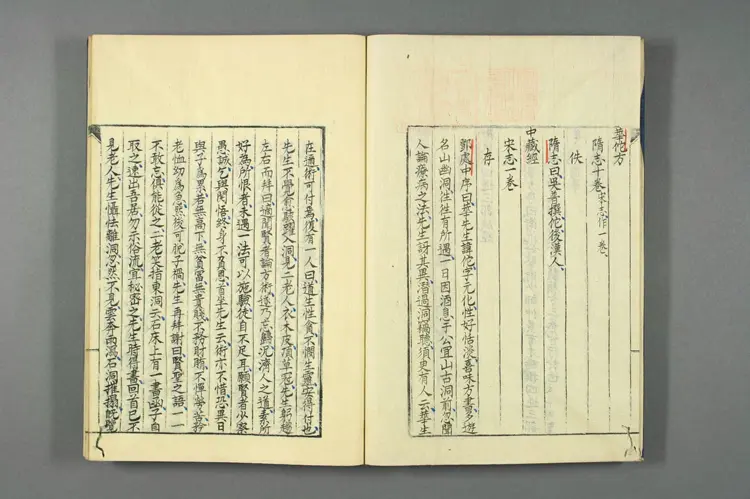 華佗方
隋志十卷宋志作一卷
佚
隋志曰吳普撰佗後漢人
中藏經
宋志一卷
存
鄧處中序曰華先生諱佗字元化性好恬淡喜味方書多遊
名山幽洞往往有所遇一日因酒息于公宜山古洞前忽聞
人論療病之法先生訝其異潛逼洞竊聽須臾有人云華生
在邇術可付焉復有一人曰道生性貪不憫生靈安得付也
先生不覺愈駭躍入洞見二老人衣木皮頂草冠先生躬趨
左右而拜曰適聞賢者論方術遂乃忘歸況濟人之道素所
好為所恨者未遇一法可以施驗徒自不足耳願賢者少察
愚誠乞與開悟終身不負恩首坐先生云術亦不惜恐異日
與子為累若無高下無貧富無貴賤不務財賄不憚勞苦矜
老恤幼為急然後可脫子禍先生再拜謝曰賢聖之語一一
不敢忘俱能從之二老笑指東洞云石床上有一書函子自
取之速出吾居勿示俗流宜秘密之先生時得書回首已不
見老人先生懾怯離洞忽然不見雲奔雨瀉石洞摧塌既覽